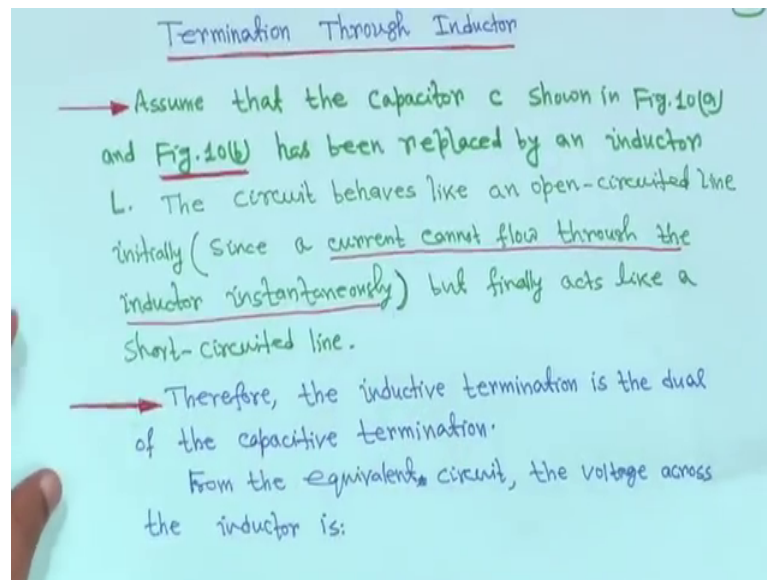 Termination Through Inductor
Assume that the capacitor c shown in Fig.10(a)
and Fig.10(b) has been replaced by an inductor
L. The circuit behaves like an open-circuited line
initially (since a current cannot flow through the
inductor instantaneously) but finally acts like a
short-circuited line.
Therefore, the inductive termination is the dual
of the capacitive termination.
From the equivalent circuit, the voltage across
the inductor is: